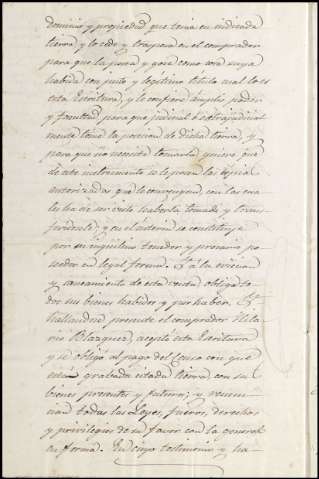 dominio y propiedad que tenia en indicada
tierra, y lo cede y traspasa en el comprador
para que la posea y goze como cosa suya
habida con justo y legitimo titulo cual lo es
esta Escritura, y le confiere amplio poder
y facultad para que judicial ó extrajudicial
mente tome la posesion de dicha tierra, y
para que no necesite tomarla, quiere que
de este instrumento se le den las copias
autorizadas que le convengan, con las cua
les ha de ser visto haberla tomado y trans
feridosele, y en el interin se constituye
por su inquilino tenedor y precario po
seedor en legal forma. Y á la eviccion
y saneamiento de esta venta obliga to
dos sus bienes habidos y por haber. Y
hallandose presente el comprador Hila
rio Blazquez, aceptó esta Escritura
y se obligó al pago del Censo con que
está grabada citada tierra, con sus
bienes presentes y futuros; y renun
cian todas las Leyes, fueros, derechos
y privilegios de su favor con la general
en forma. En cuyo testimonio y ha-